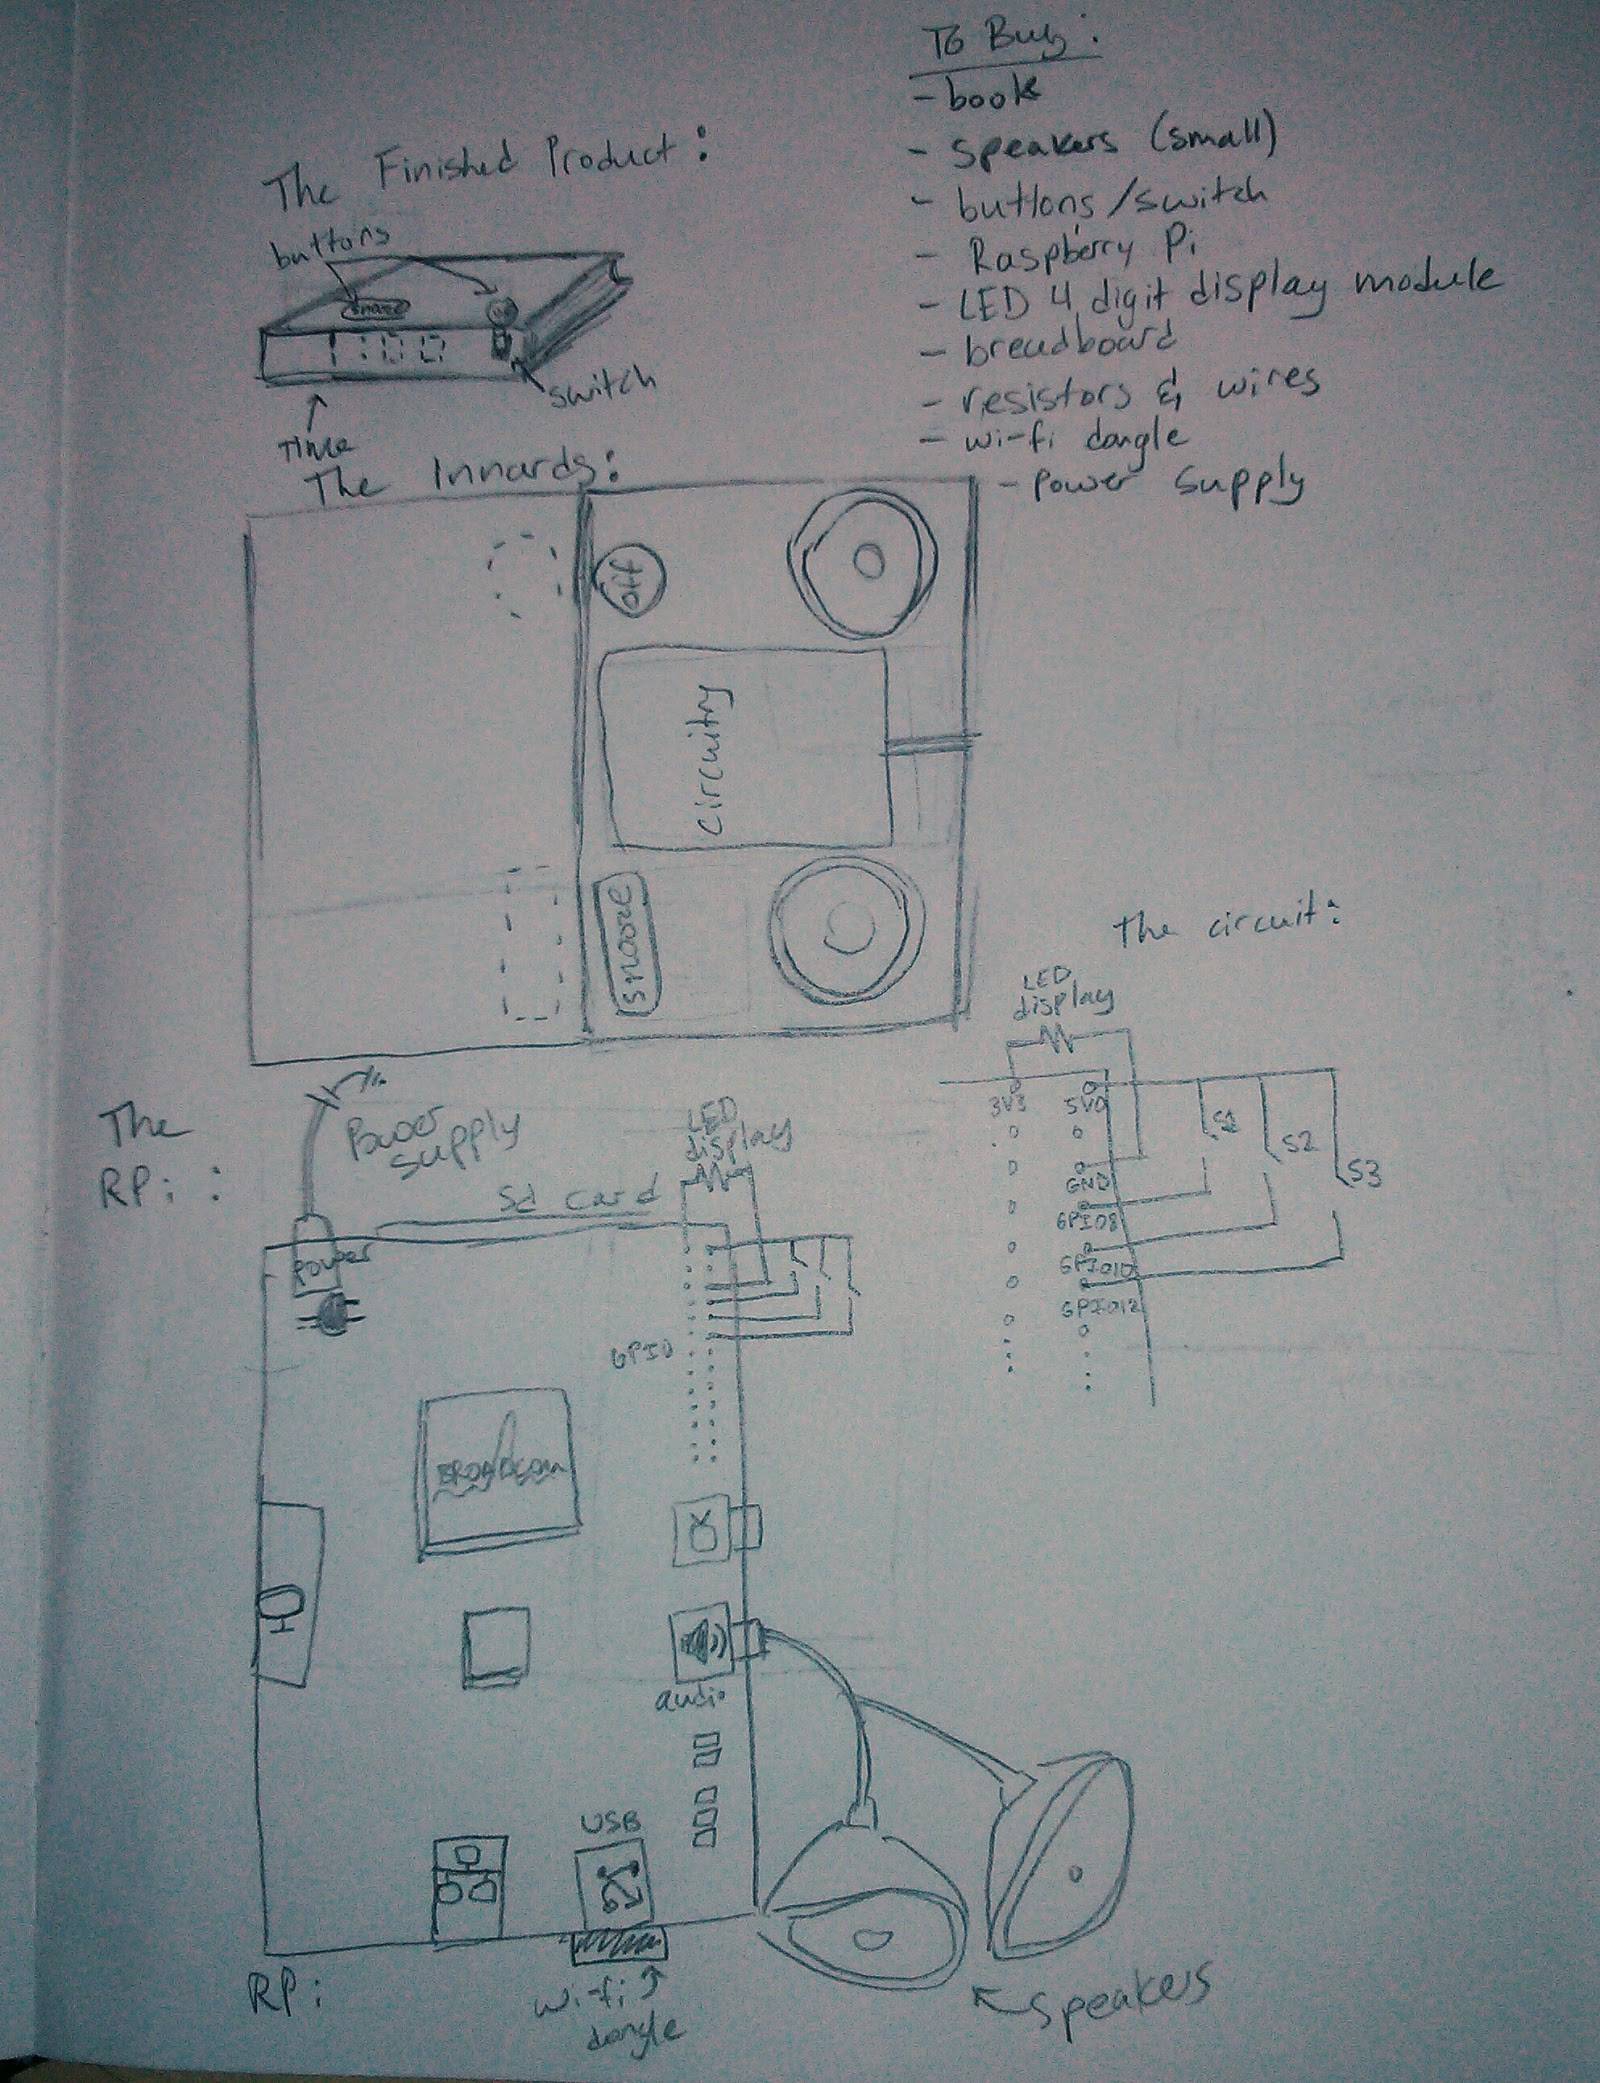 To Buy:
- book
- speakers (small)
- buttons/switch
- Raspberry Pi
- LED 4 digit display module
- breadboard
- resistors & wires
- wi-fi dongle
- Power supply
The Finished Product:
buttons
snooze
off
1:00
switch
Time
The Innards:
off
Circuitry
snooze
The circuit:
LED
display
3V3
5V0
GND
GPIO8
GPIO10
GPIO12
S1
S2
S3
The
RPi:
Power
supply
Sd card
LED
display
power
GPIO
BROADCOM
audio
USB
RPi
wi-fi
dongle
speakers